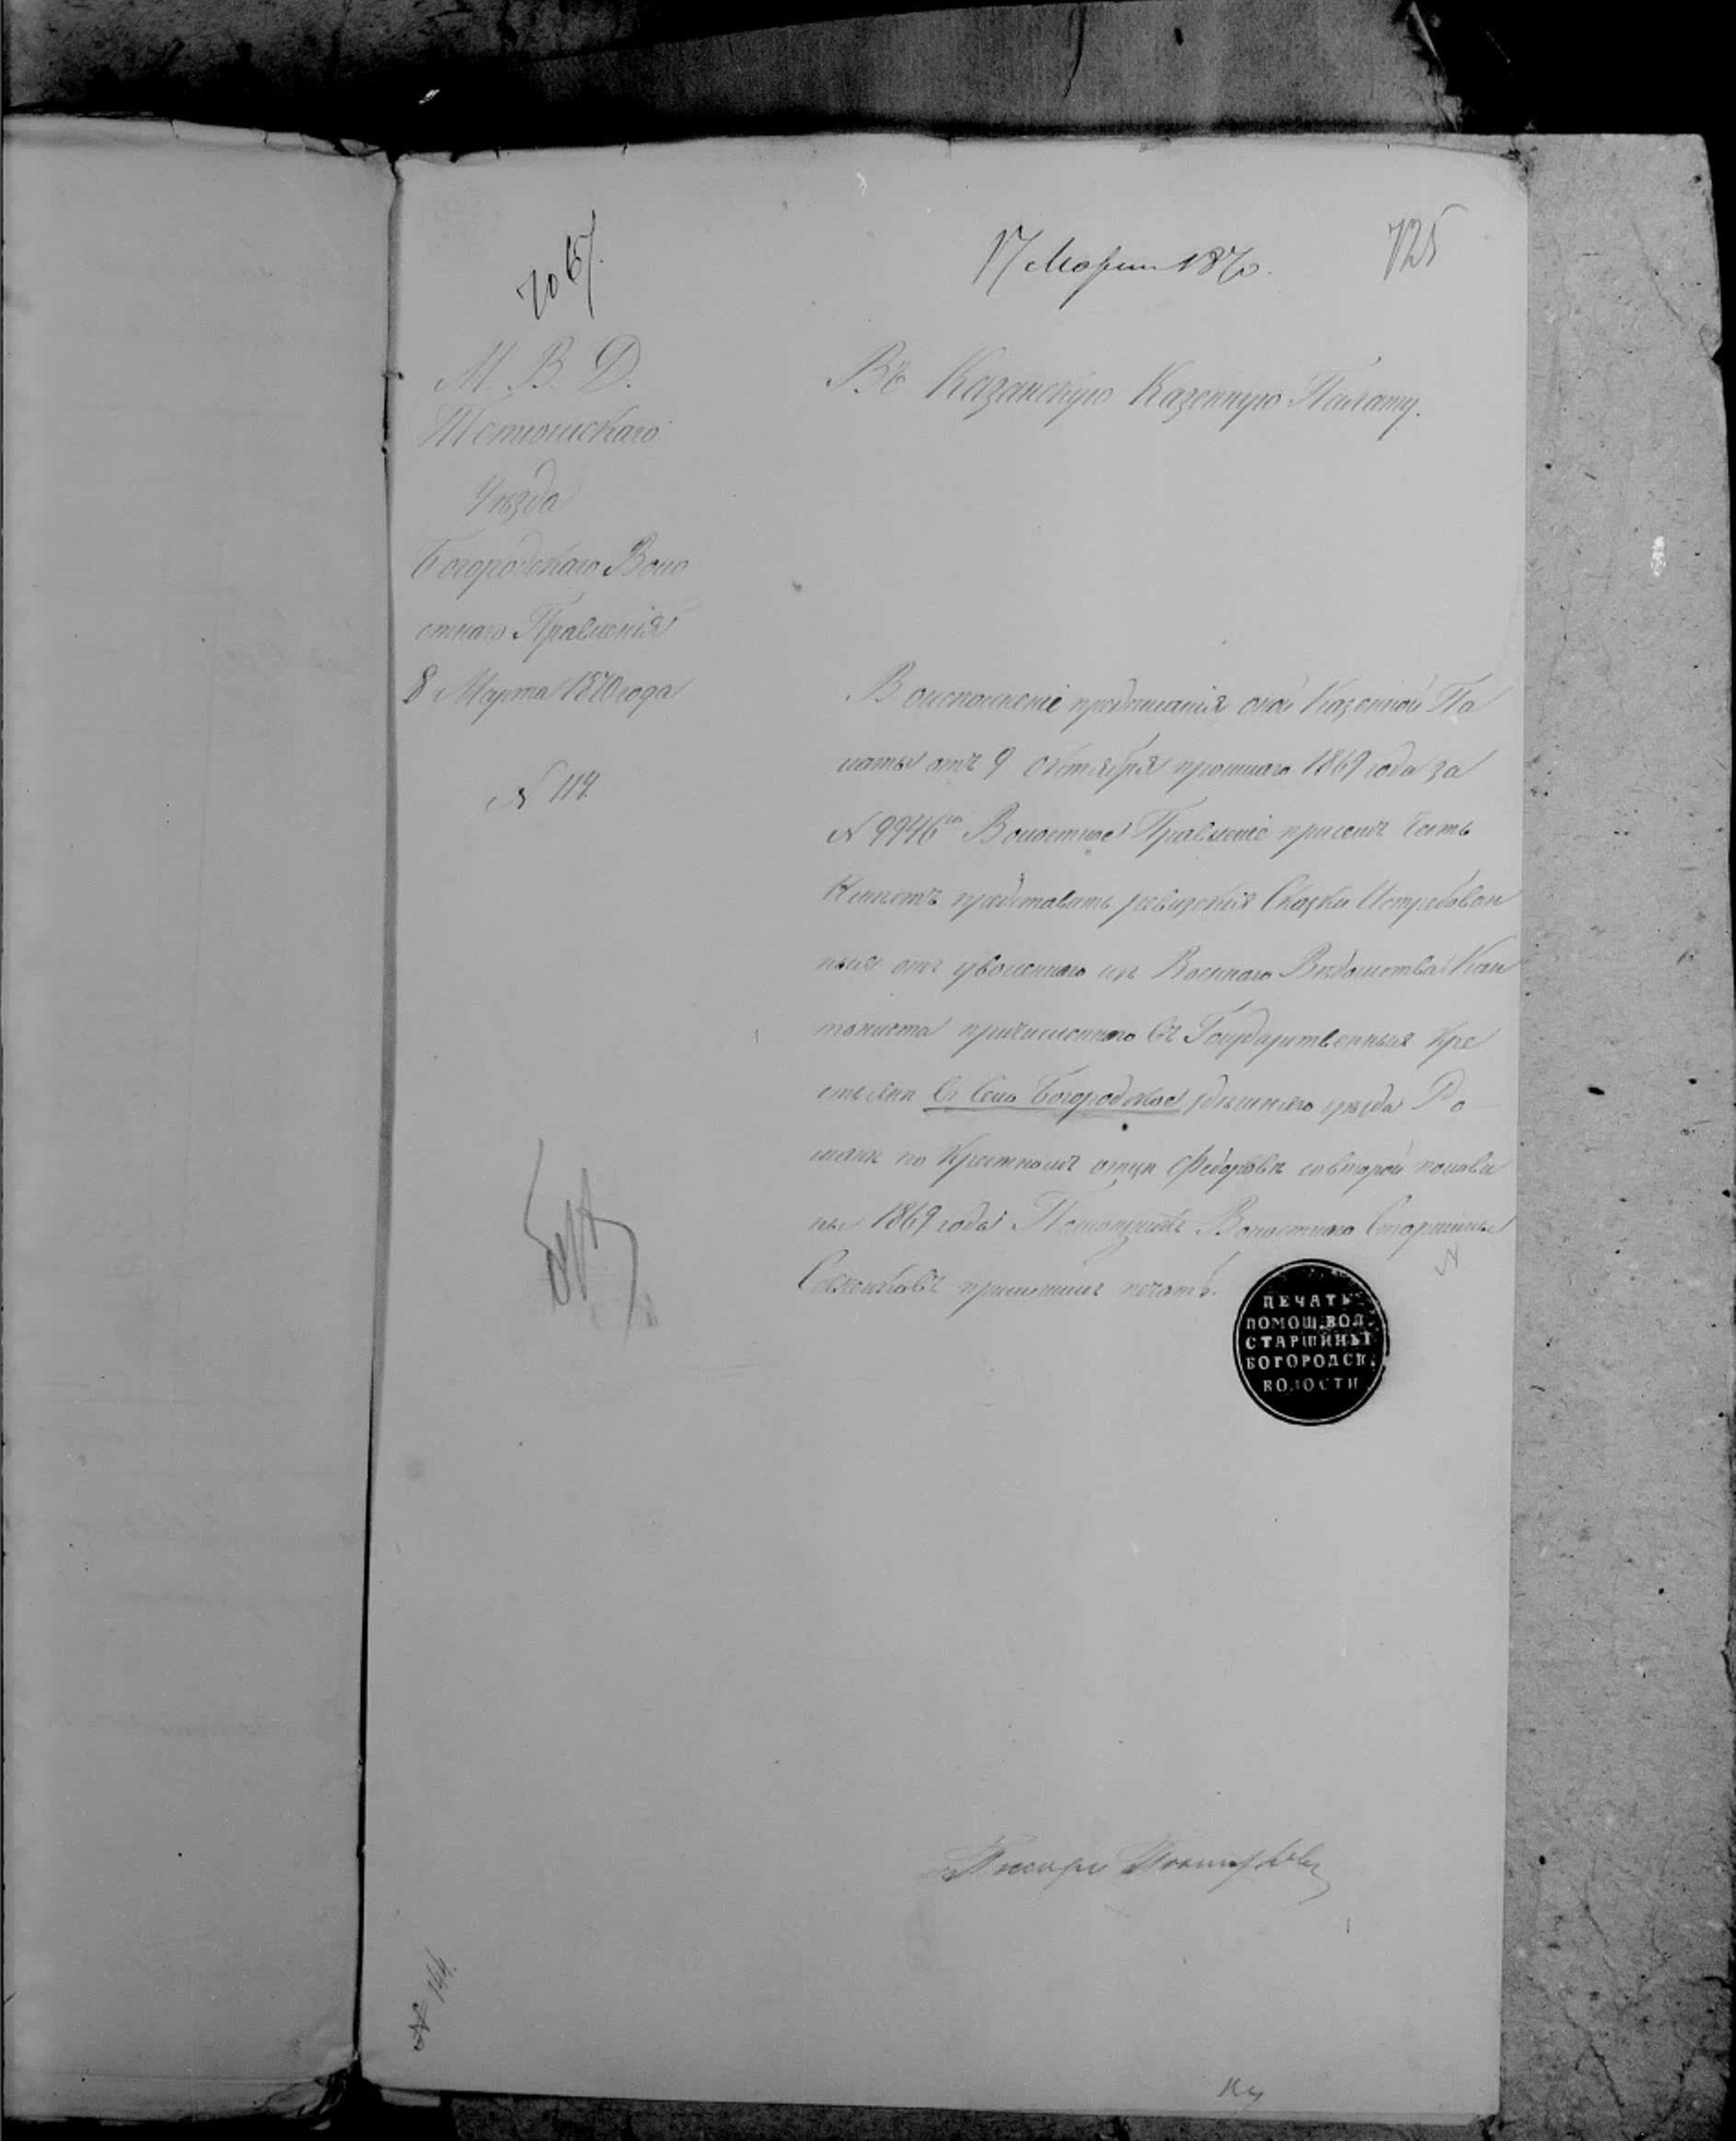 17 Марта 1870.
725
2067.
М. В. Д.
Тетюшскаго
Уѣзда
Богородскаго Воло
стнаго Правленія
8 Марта 1870 года
№ 114.
Въ Казанскую Казенную Палату.
Во исполненіе предписанія оной Казенной Па
латы отъ 9 Октября прошлаго 1869 года за
№ 9946 Волостное Правленіе при семъ честь
имѣетъ представить ревизскія Сказки Истребован
ныя отъ уволеннаго изъ Военнаго Вѣдомства Кан
тониста причисленнаго въ Государственныя Кре
стьяня въ Село Богородское здѣшняго уѣзда Ро
мана по Крестному отцу Федорова со второй полови
ны 1869 года Помощникъ Волостнаго Старшины
приложилъ печать.
ПЕЧАТЬ
ПОМОЩ. ВОЛ.
СТАРШИНЫ
БОГОРОДСК.
ВОЛОСТИ
Писарь